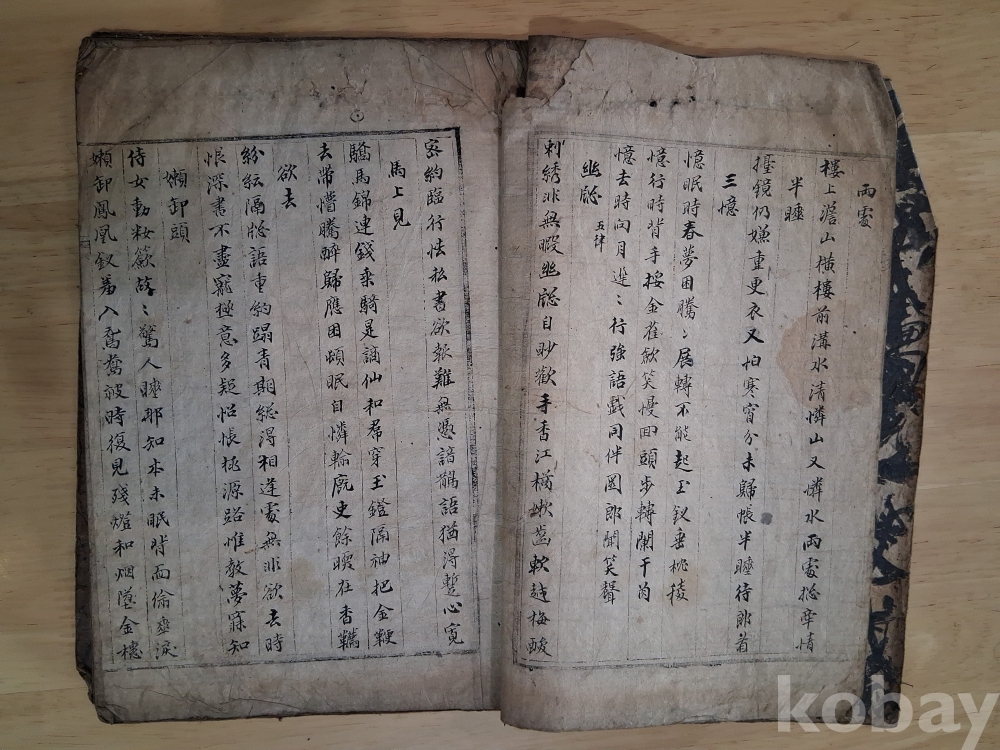 兩處
樓上澹山橫樓前溝水淸憐山又憐水兩處總牽情
半睡
擡鏡仍嫌重更衣又怕寒宵分未歸帳半睡待郎看
三憶
憶眠時春夢困騰〻展轉不能起玉釵垂枕稜
憶行時背手挼金雀歛笑慢回頭步轉闌干角
憶去時向月遲〻行強語戲同伴圖郎聞笑聲
幽窓 五律
刺綉非無暇幽窓自尠歡手香江橘嫰齒軟越梅酸
密約臨行怯私書欲報難無憑諳鵲語猶得蹔心寬
馬上見
驕馬錦連錢乘騎是謫仙和裙穿玉鐙隔袖把金鞭
去帶懵騰醉歸應困頓眠自憐輸廐吏餘暖在香韉
欲去
紛紜隔窓語重約蹋靑期總得相逢處無非欲去時
恨深書不盡寵極意多疑怊悵桃源路惟敎夢寐知
嬾卸頭
侍女動妝籨故〻驚人睡那知本未眠背面偷垂淚
嬾卸鳳凰釵羞入鴛鴦被時復見殘燈和烟墜金穗
kobay